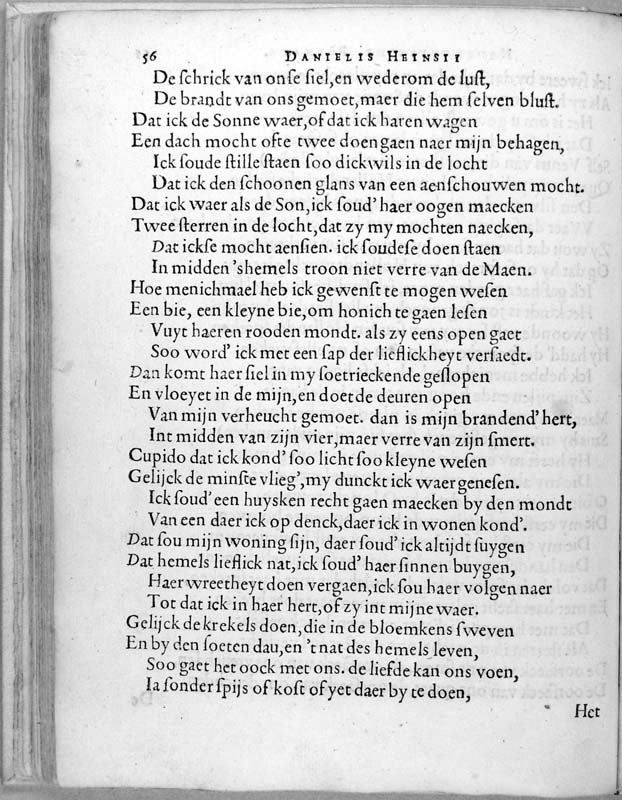 56 DANIELIS HEINSII
De schrick van onse siel, en wederom de lust,
De brandt van ons gemoet, maer die hem selven blust.
Dat ick de Sonne waer, of dat ick haren wagen
Een dach mocht ofte twee doen gaen naer mijn behagen,
Ick soude stille staen soo dickwils in de locht
Dat ick den schoonen glans van een aenschouwen mocht.
Dat ick waer als de Son, ick soud' haer oogen maecken
Twee sterren in de locht, dat zy my mochten naecken,
Dat ickse mocht aensien. ick soudese doen staen
In midden 'shemels troon niet verre van de Maen.
Hoe menichmael heb ick gewenst te mogen wesen
Een bie, een kleyne bie, om honich te gaen lesen
Vuyt haeren rooden mondt. als zy eens open gaet
Soo word' ick met een sap der lieflickheyt versaedt.
Dan komt haer siel in my soetrieckende geslopen
En vloeyet in de mijn, en doet de deuren open
Van mijn verheucht gemoet. dan is mijn brandend' hert,
Int midden van zijn vier, maer verre van zijn smert.
Cupido dat ick kond' soo licht soo kleyne wesen
Gelijck de minste vlieg', my dunckt ick waer genesen.
Ick soud' een huysken recht gaen maecken by den mondt
Van een daer ick op denck, daer ick in wonen kond'.
Dat sou mijn woning sijn, daer soud' ick altijdt suygen
Dat hemels lieflick nat, ick soud' haer sinnen buygen,
Haer wreetheyt doen vergaen, ick sou haer volgen naer
Tot dat ick in haer hert, of zy int mijne waer.
Gelijck de krekels doen, die in de bloemkens sweven
En by den soeten dau, en 't nat des hemels leven,
Soo gaet het oock met ons. de liefde kan ons voen,
Ia sonder spijs of kost of yet daer by te doen,
Het